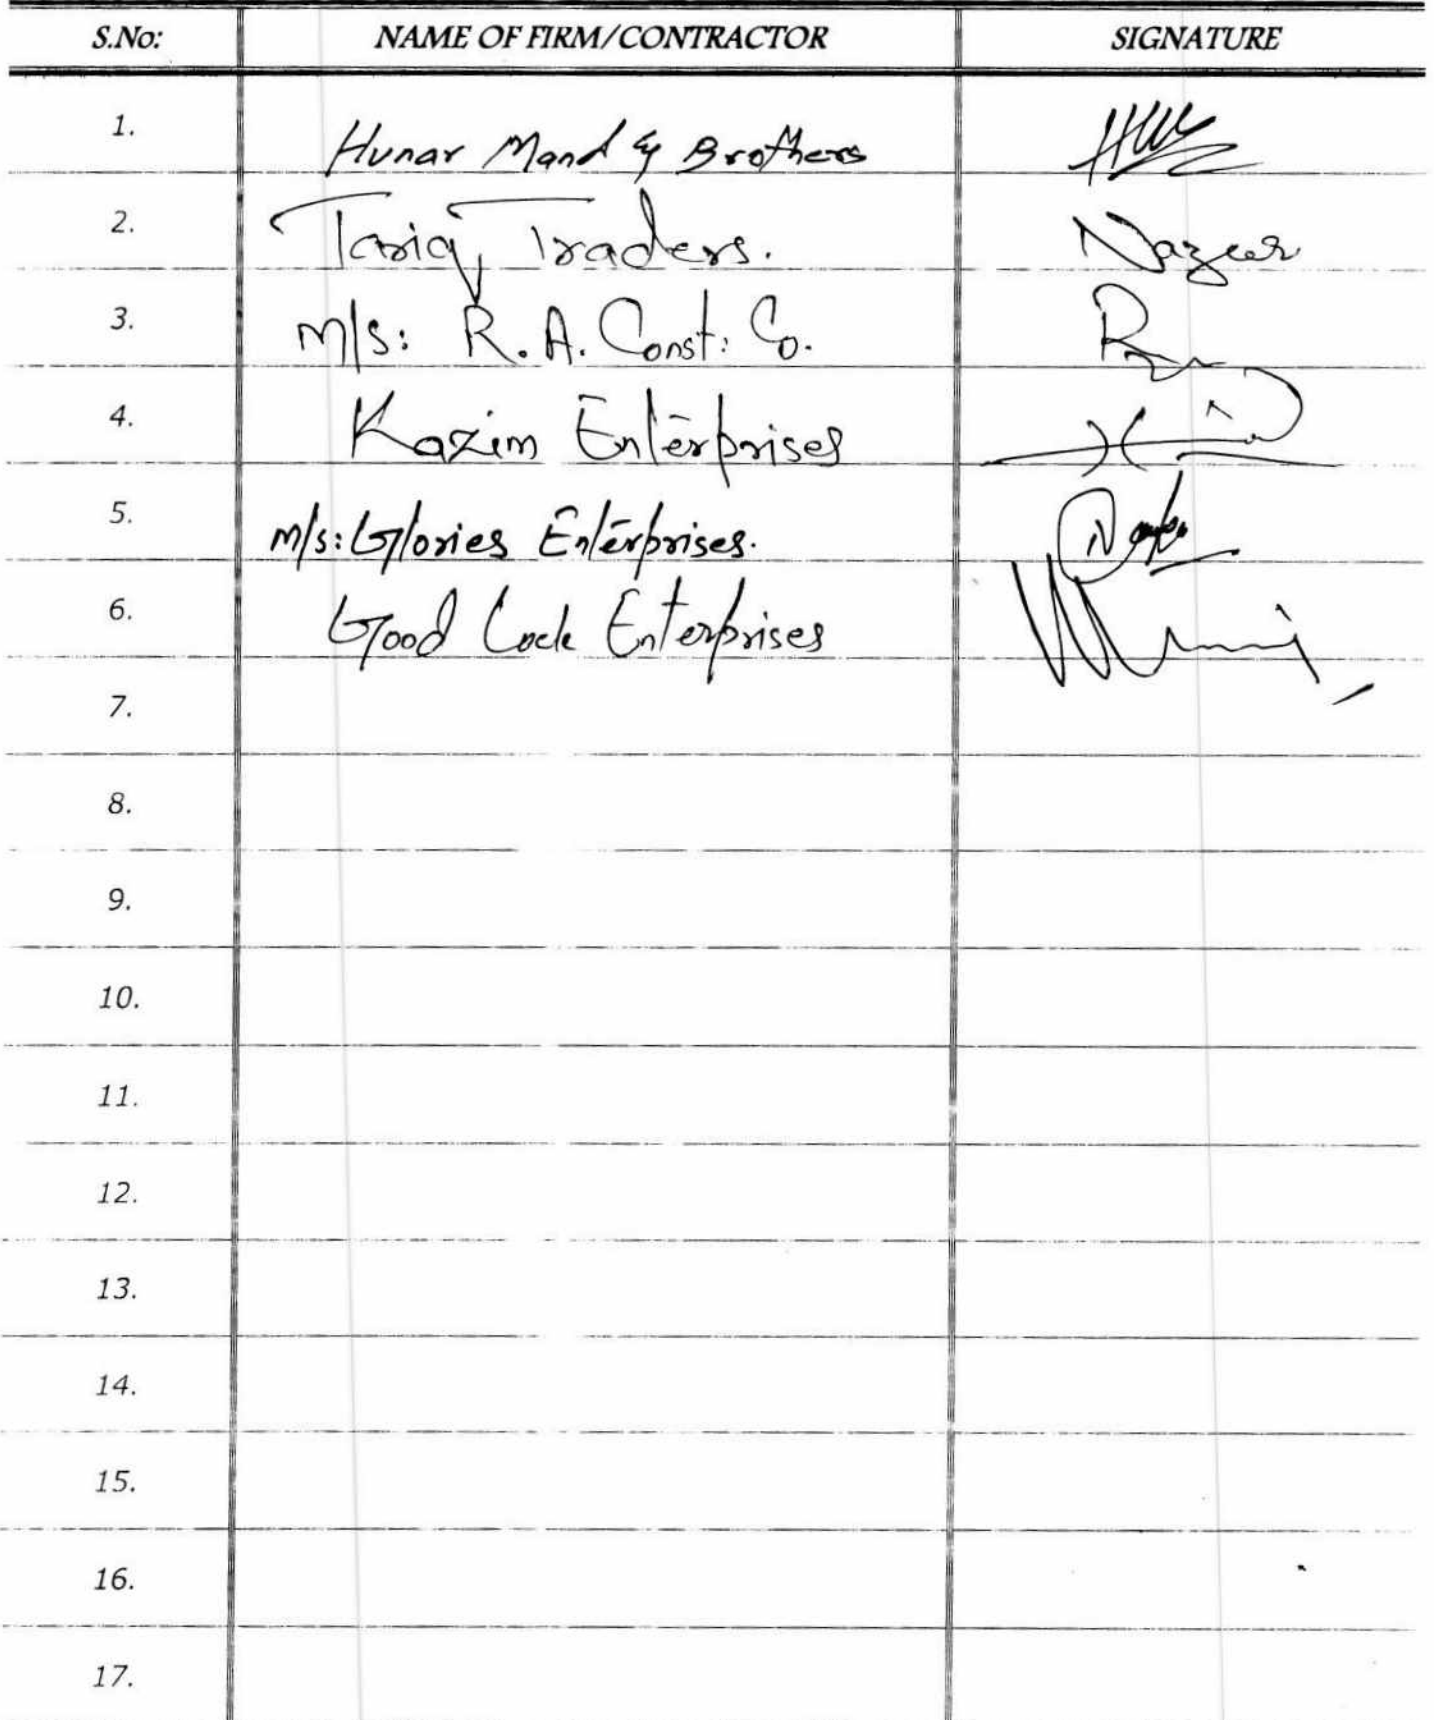 S.No: NAME OF FIRM/CONTRACTOR SIGNATURE
1. Hunar Mand & Brothers
2. Tariq Traders. Nazeer
3. M/S: R.A. Const: Co.
4. Kazim Enterprises
5. M/S: Glories Enterprises.
6. Good Lock Enterprises
7.
8.
9.
10.
11.
12.
13.
14.
15.
16.
17.